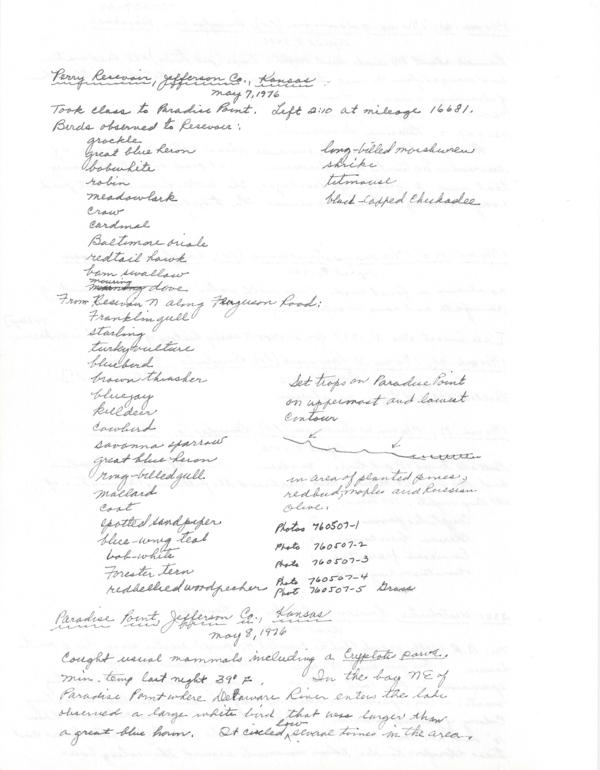 Perry Resevoir, Jefferson Co., Kansas
May 7, 1976
Took class to Paradise Point. Left 2:10 at mileage 16681.
Birds observed to Resevoir:
grackle
great blue heron
bobwhite
robin
meadowlark
crow
cardinal
Baltimore oriole
redtail hawk
barn swallow
mouring dove
long-billed marshwren
shrike
titmouse
black-capped chickadee
From Resevoir N along Ferguson Road:
Franklin gull
starling
turky vulture
bluebird
brown thrasher
bluejay
killdeer
cowbird
savanna sparrow
great blue heron
ring-billed gull
mallard
coot
spotted sandpiper
blue-wing teal
bob-white
Forester tern
redbellied woodpecker
Set traps on Paradise Point
on uppermost and lowest
contour
in area of planted pines,
redbud, maples and Russian
olive.
Photos 760507-1
Photo 760507-2
Photo 760507-3
Photo 760507-4
Phot 760507-5 Grass
Paradise Point, Jefferson Co., Kansas
May 8, 1976
Caught usual mammals including a Cryptotis parva.
Min. temp last night 39° F. In the bay NE of
Paradise Point where Delaware River enters the lake
observed a large white bird that was larger than
a great blue heron. It circled low several times in the area.